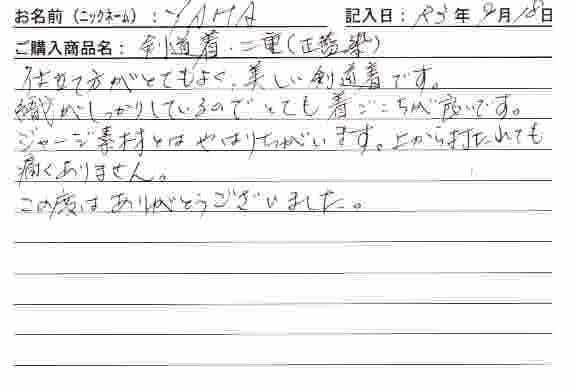 お名前（ニックネーム）：YAHA 記入日：R3年9月18日
ご購入商品名：剣道着・二重(正藍染)
仕立て方がとてもよく、美しい剣道着です。
織がしっかりしているのでとても着ごこちが良いです。
ジャージ素材とはやはりちがいます。上から打たれても
痛くありません。
この度はありがとうございました。